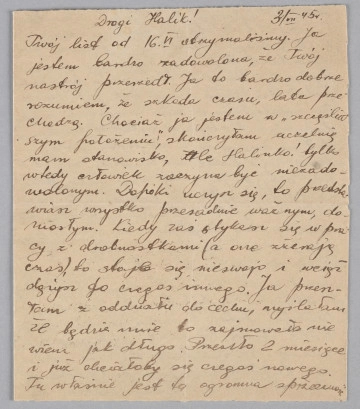 Drogi Halik! 3/VII 45r.
Twój list od 16.VI otrzymaliśmy. Ja
jestem bardzo zadowolona, że Twój
nastrój przeszedł. Ja to bardzo dobrze
rozumiem, że szkoda czasu, lata prze
chodzą. Chociaż ja jestem w „szczęśliw
szym położeniu”, skończyłam uczelnię
mam stanowisko, ale Halinko! tylko
wtedy człowiek zaczyna być niezado-
wolonym. Dopóki uczysz się, to przedsta
wiasz wszystko przesadnie ważnym, do
niosłym. Kiedy zaś stykasz się w pra
cy z drobnostkami (a one zżerają
czas) to staje się nieswojo i wciąż
dążysz do czegoś innego. Ja przesz
łam z oddziału do cechu, myślałam
że będzie mnie to zajmowało nie
wiem jak długo. Przeszło 2 miesiące
i już chciałoby się czegoś nowego.
Tu właśnie jest ta ogromna